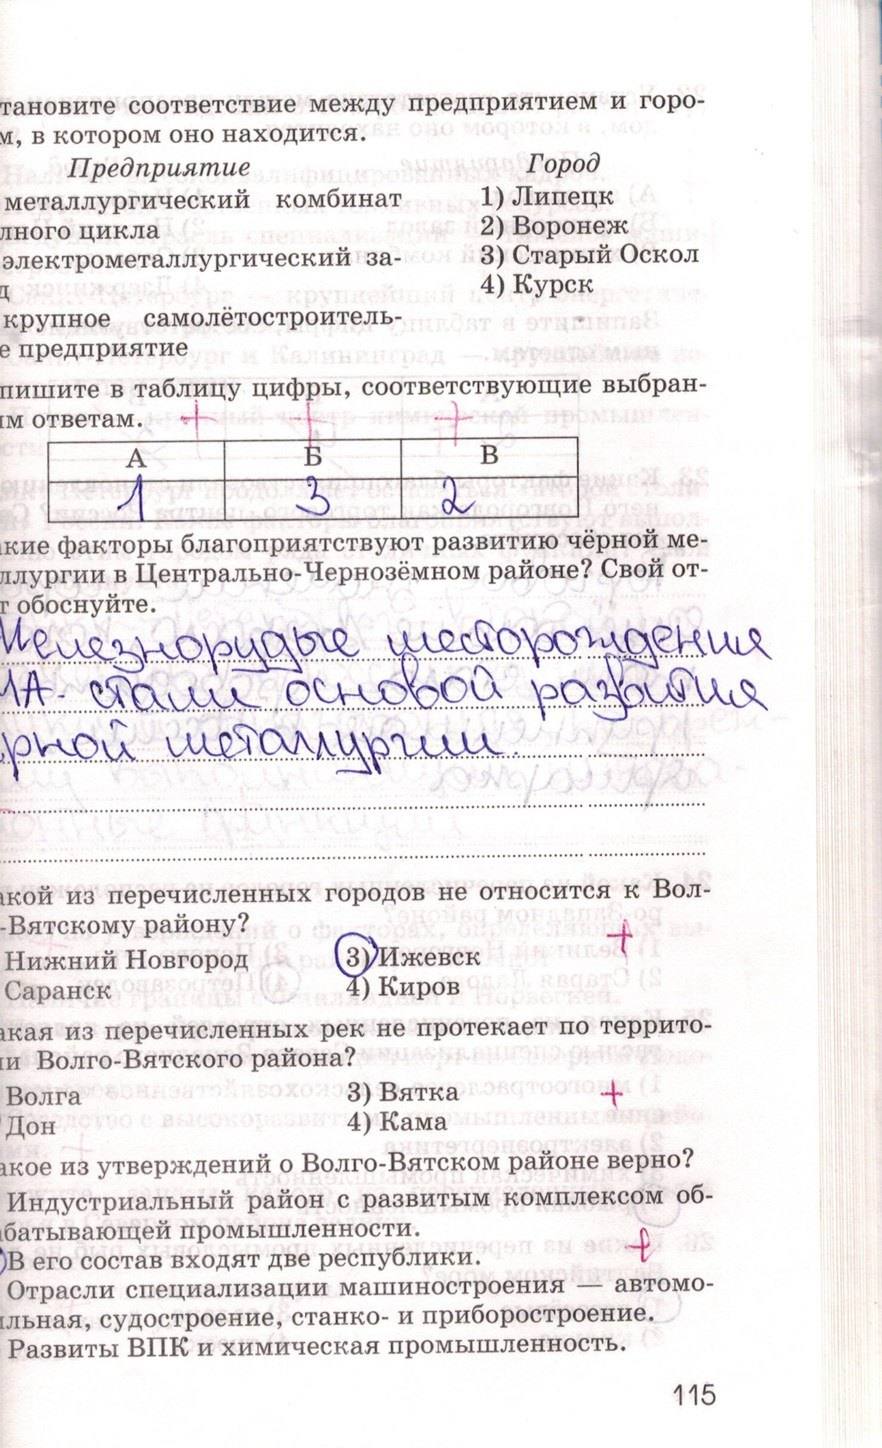 тановите соответствие между предприятием и горо-
м, в котором оно находится.
Предприятие Город
металлургический комбинат 1) Липецк
лного цикла 2) Воронеж
электрометаллургический за- 3) Старый Оскол
д 4) Курск
крупное самолётостроитель-
е предприятие
пишите в таблицу цифры, соответствующие выбран-
ім ответам.
+ + +
А Б В
1 3 2
акие факторы благоприятствуют развитию чёрной ме-
ллургии в Центрально-Чернозёмном районе? Свой от-
т обоснуйте.
Железнорудые месторождения
МА - стали основой развития
рной металлургии.
акой из перечисленных городов не относится к Вол-
-Вятскому району?
+
Нижний Новгород 3) Ижевск
Саранск 4) Киров
акая из перечисленных рек не протекает по террито-
ии Волго-Вятского района?
Волга 3) Вятка +
Дон 4) Кама
акое из утверждений о Волго-Вятском районе верно?
Индустриальный район с развитым комплексом об-
абатывающей промышленности.
В его состав входят две республики. +
Отрасли специализации машиностроения — автомо-
ильная, судостроение, станко- и приборостроение.
Развиты ВПК и химическая промышленность.
115